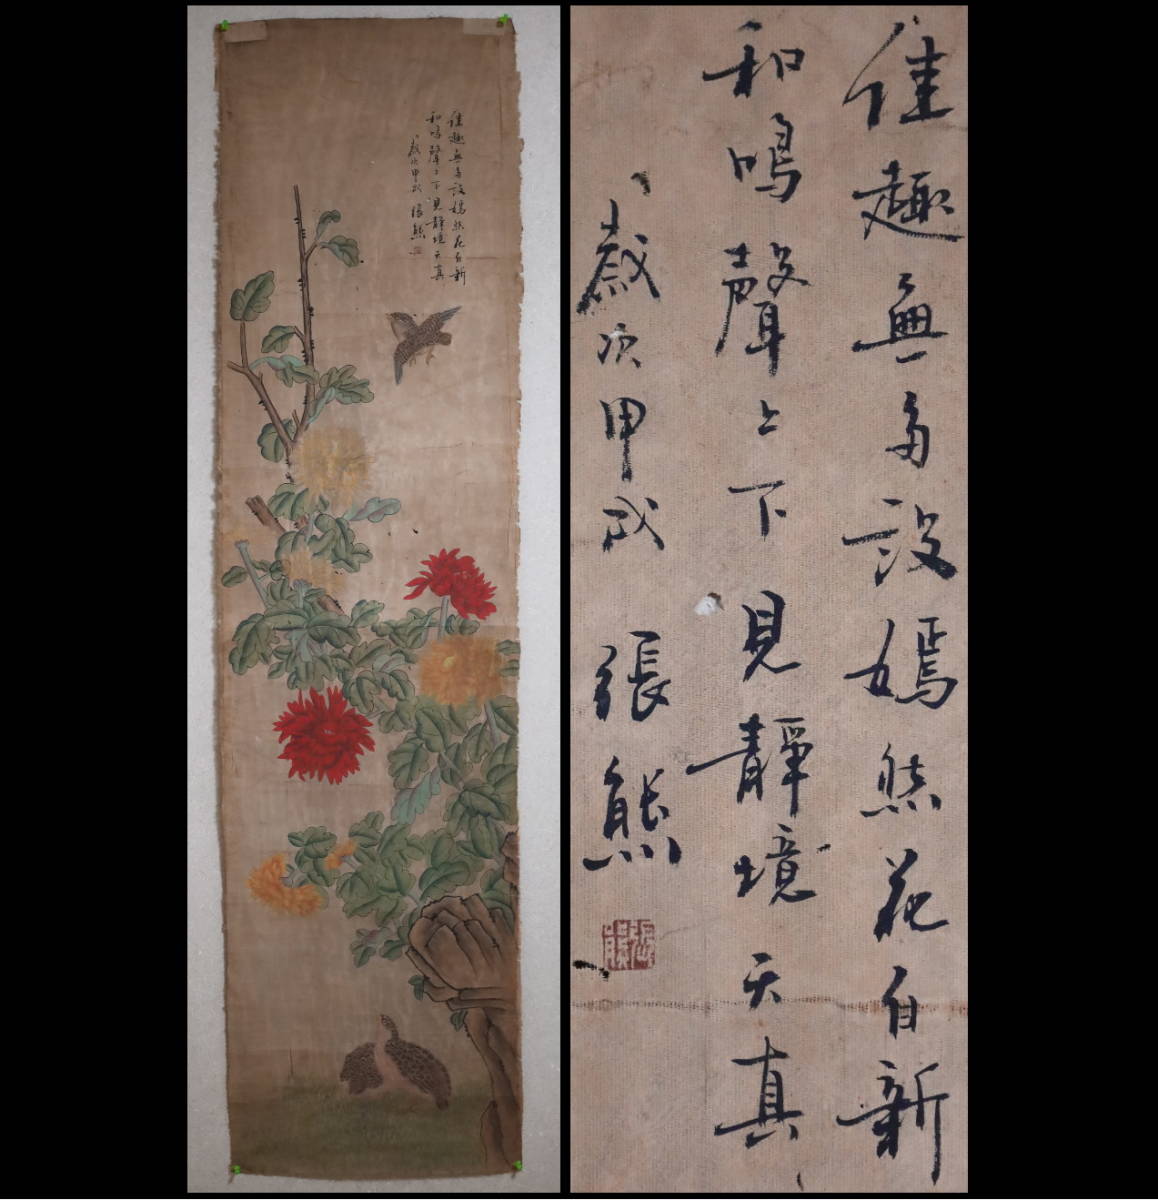 佳趣無多設嫣然花自新
和鳴聲上下見靜境天真
歲次甲戌 張熊
佳趣無多設嫣然花自新
和鳴聲上下見靜境天真
歲次甲戌 張熊